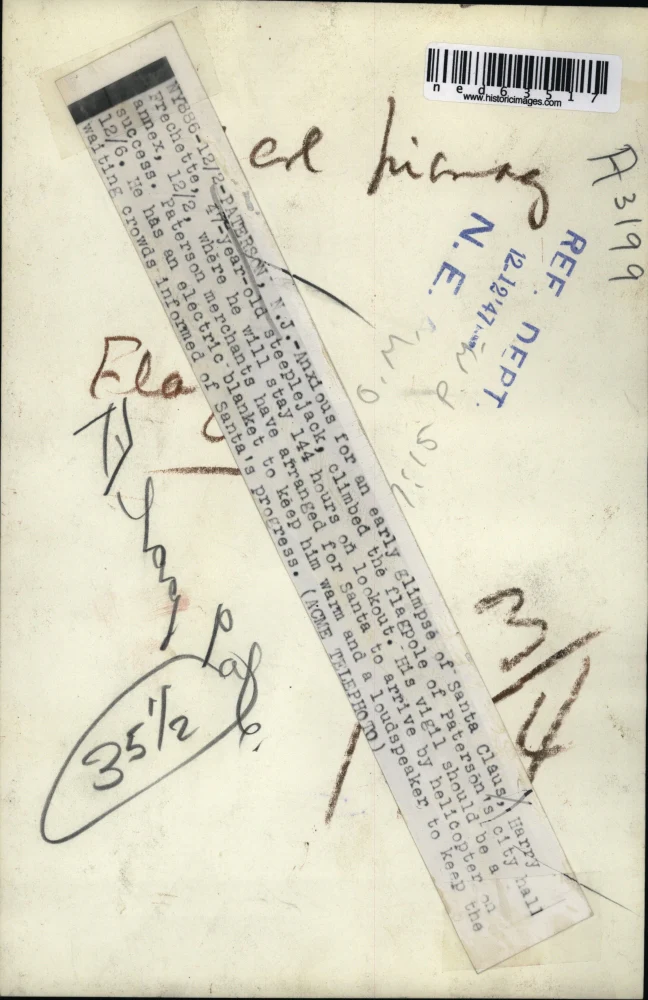 ned63517
www.historicimages.com
A3199
REF. DEPT.
12-12'47
N. E.
NY886-12/2-PATERSON, N.J.-Anxious for an early glimpse of Santa Claus, Harry
Frechette, 47-year-old steeplejack, climbed the flagpole of Paterson's city hall
annex, 12/2, where he will stay 144 hours on lookout. His vigil should be a
success. Paterson merchants have arranged for Santa to arrive by helicopter on
12/6. He has an electric blanket to keep him warm and a loudspeaker to keep the
waiting crowds informed of Santa's progress. (ACME TELEPHOTO)
35 1/2
3/4